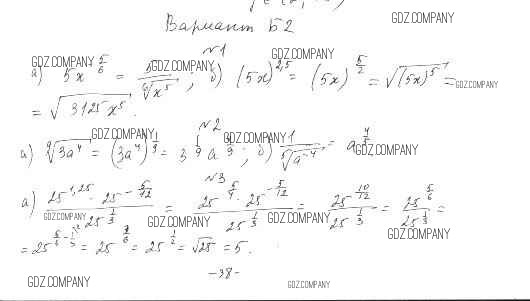 Вариант Б2
GDZ.COMPANY
№1
GDZ.COMPANY GDZ.COMPANY
а) 5x^{5/6} = 5\sqrt[6]{x^5}; б) (5x)^{2,5} = (5x)^{5/2} = \sqrt{(5x)^5} =
GDZ.COMPANY GDZ.COMPANY
= \sqrt{3125x^5}.
№2
GDZ.COMPANY GDZ.COMPANY
а) \sqrt[9]{3a^4} = (3a^4)^{1/9} = 3^{1/9} a^{4/9}; б) \frac{1}{\sqrt[5]{a^{-4}}} = a^{4/5}
GDZ.COMPANY
№3
а) \frac{25^{1,25} \cdot 25^{-5/12}}{25^{1/3}} = \frac{25^{5/4} \cdot 25^{-5/12}}{25^{1/3}} = \frac{25^{10/12}}{25^{1/3}} = \frac{25^{5/6}}{25^{1/3}} =
GDZ.COMPANY GDZ.COMPANY GDZ.COMPANY GDZ.COMPANY
= 25^{5/6 - 1/3} = 25^{3/6} = 25^{1/2} = \sqrt{25} = 5.
-38-
GDZ.COMPANY GDZ.COMPANY